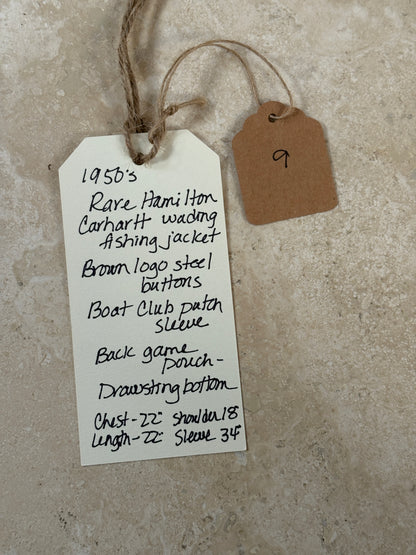 1950's
Rare Hamilton
Carhartt wading
fishing jacket
Brown logo steel
buttons
Boat Club patch
sleeve
Back game
pouch-
Drawsting bottom
Chest-22" Shoulder 18"
Length-22" Sleeve 34"
9